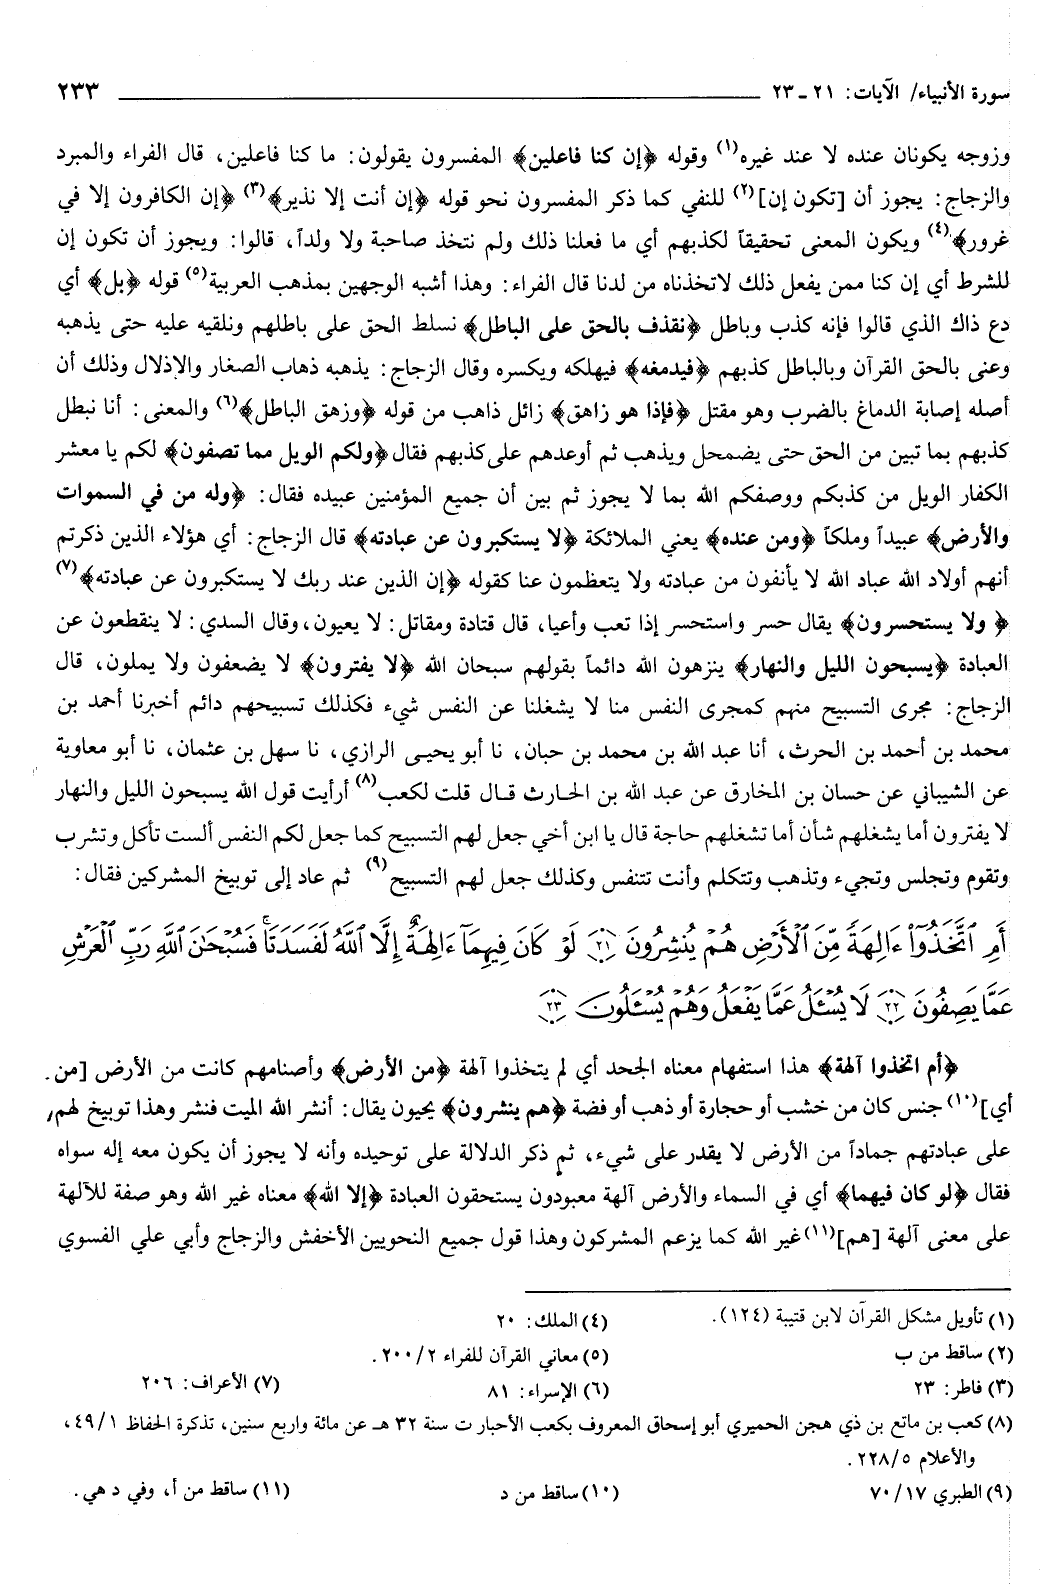 سورة الأنبياء/ الآيات: ٢١ ـ ٢٣ ٢٣٣
وزوجه يكونان عنده لا عند غيره(١) وقوله ﴿إن كنا فاعلين﴾ المفسرون يقولون: ما كنا فاعلين، قال الفراء والمبرد
والزجاج: يجوز أن [تكون إن](٢) للنفي كما ذكر المفسرون نحو قوله ﴿إن أنت إلا نذير﴾(٣) ﴿إن الكافرون إلا في
غرور﴾(٤) ويكون المعنى تحقيقاً لكذبهم أي ما فعلنا ذلك ولم نتخذ صاحبة ولا ولداً، قالوا: ويجوز أن تكون إن
للشرط أي إن كنا ممن يفعل ذلك لاتخذناه من لدنا قال الفراء: وهذا أشبه الوجهين بمذهب العربية(٥) قوله ﴿بل﴾ أي
دع ذاك الذي قالوا فإنه كذب وباطل ﴿نقذف بالحق على الباطل﴾ نسلط الحق على باطلهم ونلقيه عليه حتى يذهبه
وعنى بالحق القرآن وبالباطل كذبهم ﴿فيدمغه﴾ فيهلكه ويكسره وقال الزجاج: يذهبه ذهاب الصغار والإذلال وذلك أن
أصله إصابة الدماغ بالضرب وهو مقتل ﴿فإذا هو زاهق﴾ زائل ذاهب من قوله ﴿وزهق الباطل﴾(٦) والمعنى: أنا نبطل
كذبهم بما تبين من الحق حتى يضمحل ويذهب ثم أوعدهم على كذبهم فقال ﴿ولكم الويل مما تصفون﴾ لكم يا معشر
الكفار الويل من كذبكم ووصفكم الله بما لا يجوز ثم بين أن جميع المؤمنين عبيده فقال: ﴿وله من في السموات
والأرض﴾ عبيداً وملكاً ﴿ومن عنده﴾ يعني الملائكة ﴿لا يستكبرون عن عبادته﴾ قال الزجاج: أي هؤلاء الذين ذكرتم
أنهم أولاد الله عباد الله لا يأنفون من عبادته ولا يتعظمون عنا كقوله ﴿إن الذين عند ربك لا يستكبرون عن عبادته﴾(٧)
﴿ولا يستحسرون﴾ يقال حسر واستحسر إذا تعب وأعيا، قال قتادة ومقاتل: لا يعيون، وقال السدي: لا ينقطعون عن
العبادة ﴿يسبحون الليل والنهار﴾ ينزهون الله دائماً بقولهم سبحان الله ﴿لا يفترون﴾ لا يضعفون ولا يملون، قال
الزجاج: مجرى التسبيح منهم كمجرى النفس منا لا يشغلنا عن النفس شيء فكذلك تسبيحهم دائم أخبرنا أحمد بن
محمد بن أحمد بن الحرث، أنا عبد الله بن محمد بن حبان، نا أبو يحيى الرازي، نا سهل بن عثمان، نا أبو معاوية
عن الشيباني عن حسان بن المخارق عن عبد الله بن الحارث قال قلت لكعب(٨) أرأيت قول الله يسبحون الليل والنهار
لا يفترون أما يشغلهم شأن أما تشغلهم حاجة قال يا ابن أخي جعل لهم التسبيح كما جعل لكم النفس ألست تأكل وتشرب
وتقوم وتجلس وتجيء وتذهب وتتكلم وأنت تتنفس وكذلك جعل لهم التسبيح(٩) ثم عاد إلى توبيخ المشركين فقال:
أَمِ ٱتَّخَذُوٓا۟ ءَالِهَةً مِّنَ ٱلْأَرْضِ هُمْ يُنشِرُونَ ٢١ لَوْ كَانَ فِيهِمَآ ءَالِهَةٌ إِلَّا ٱللَّهُ لَفَسَدَتَا ۚ فَسُبْحَٰنَ ٱللَّهِ رَبِّ ٱلْعَرْشِ
عَمَّا يَصِفُونَ ٢٢ لَا يُسْـَٔلُ عَمَّا يَفْعَلُ وَهُمْ يُسْـَٔلُونَ ٢٣
﴿أم اتخذوا آلهة﴾ هذا استفهام معناه الجحد أي لم يتخذوا آلهة ﴿من الأرض﴾ وأصنامهم كانت من الأرض [من
أي](١٠) جنس كان من خشب أو حجارة أو ذهب أو فضة ﴿هم ينشرون﴾ يحيون يقال: أنشر الله الميت فنشر وهذا توبيخ لهم
على عبادتهم جماداً من الأرض لا يقدر على شيء، ثم ذكر الدلالة على توحيده وأنه لا يجوز أن يكون معه إله سواه
فقال ﴿لو كان فيهما﴾ أي في السماء والأرض آلهة معبودون يستحقون العبادة ﴿إلا الله﴾ معناه غير الله وهو صفة للآلهة
على معنى آلهة [هم](١١) غير الله كما يزعم المشركون وهذا قول جميع النحويين الأخفش والزجاج وأبي علي الفسوي
(١) تأويل مشكل القرآن لابن قتيبة (١٢٤). (٤) الملك: ٢٠
(٢) ساقط من ب (٥) معاني القرآن للفراء ٢/٢٠٠.
(٣) فاطر: ٢٣ (٦) الإسراء: ٨١ (٧) الأعراف: ٢٠٦
(٨) كعب بن ماتع بن ذي هجن الحميري أبو إسحاق المعروف بكعب الأحبار ت سنة ٣٢ هـ عن مائة واربع سنين، تذكرة الحفاظ ١/٤٩،
والأعلام ٥/٢٢٨.
(٩) الطبري ١٧/٧٠ (١٠) ساقط من د (١١) ساقط من أ، وفي د هي.